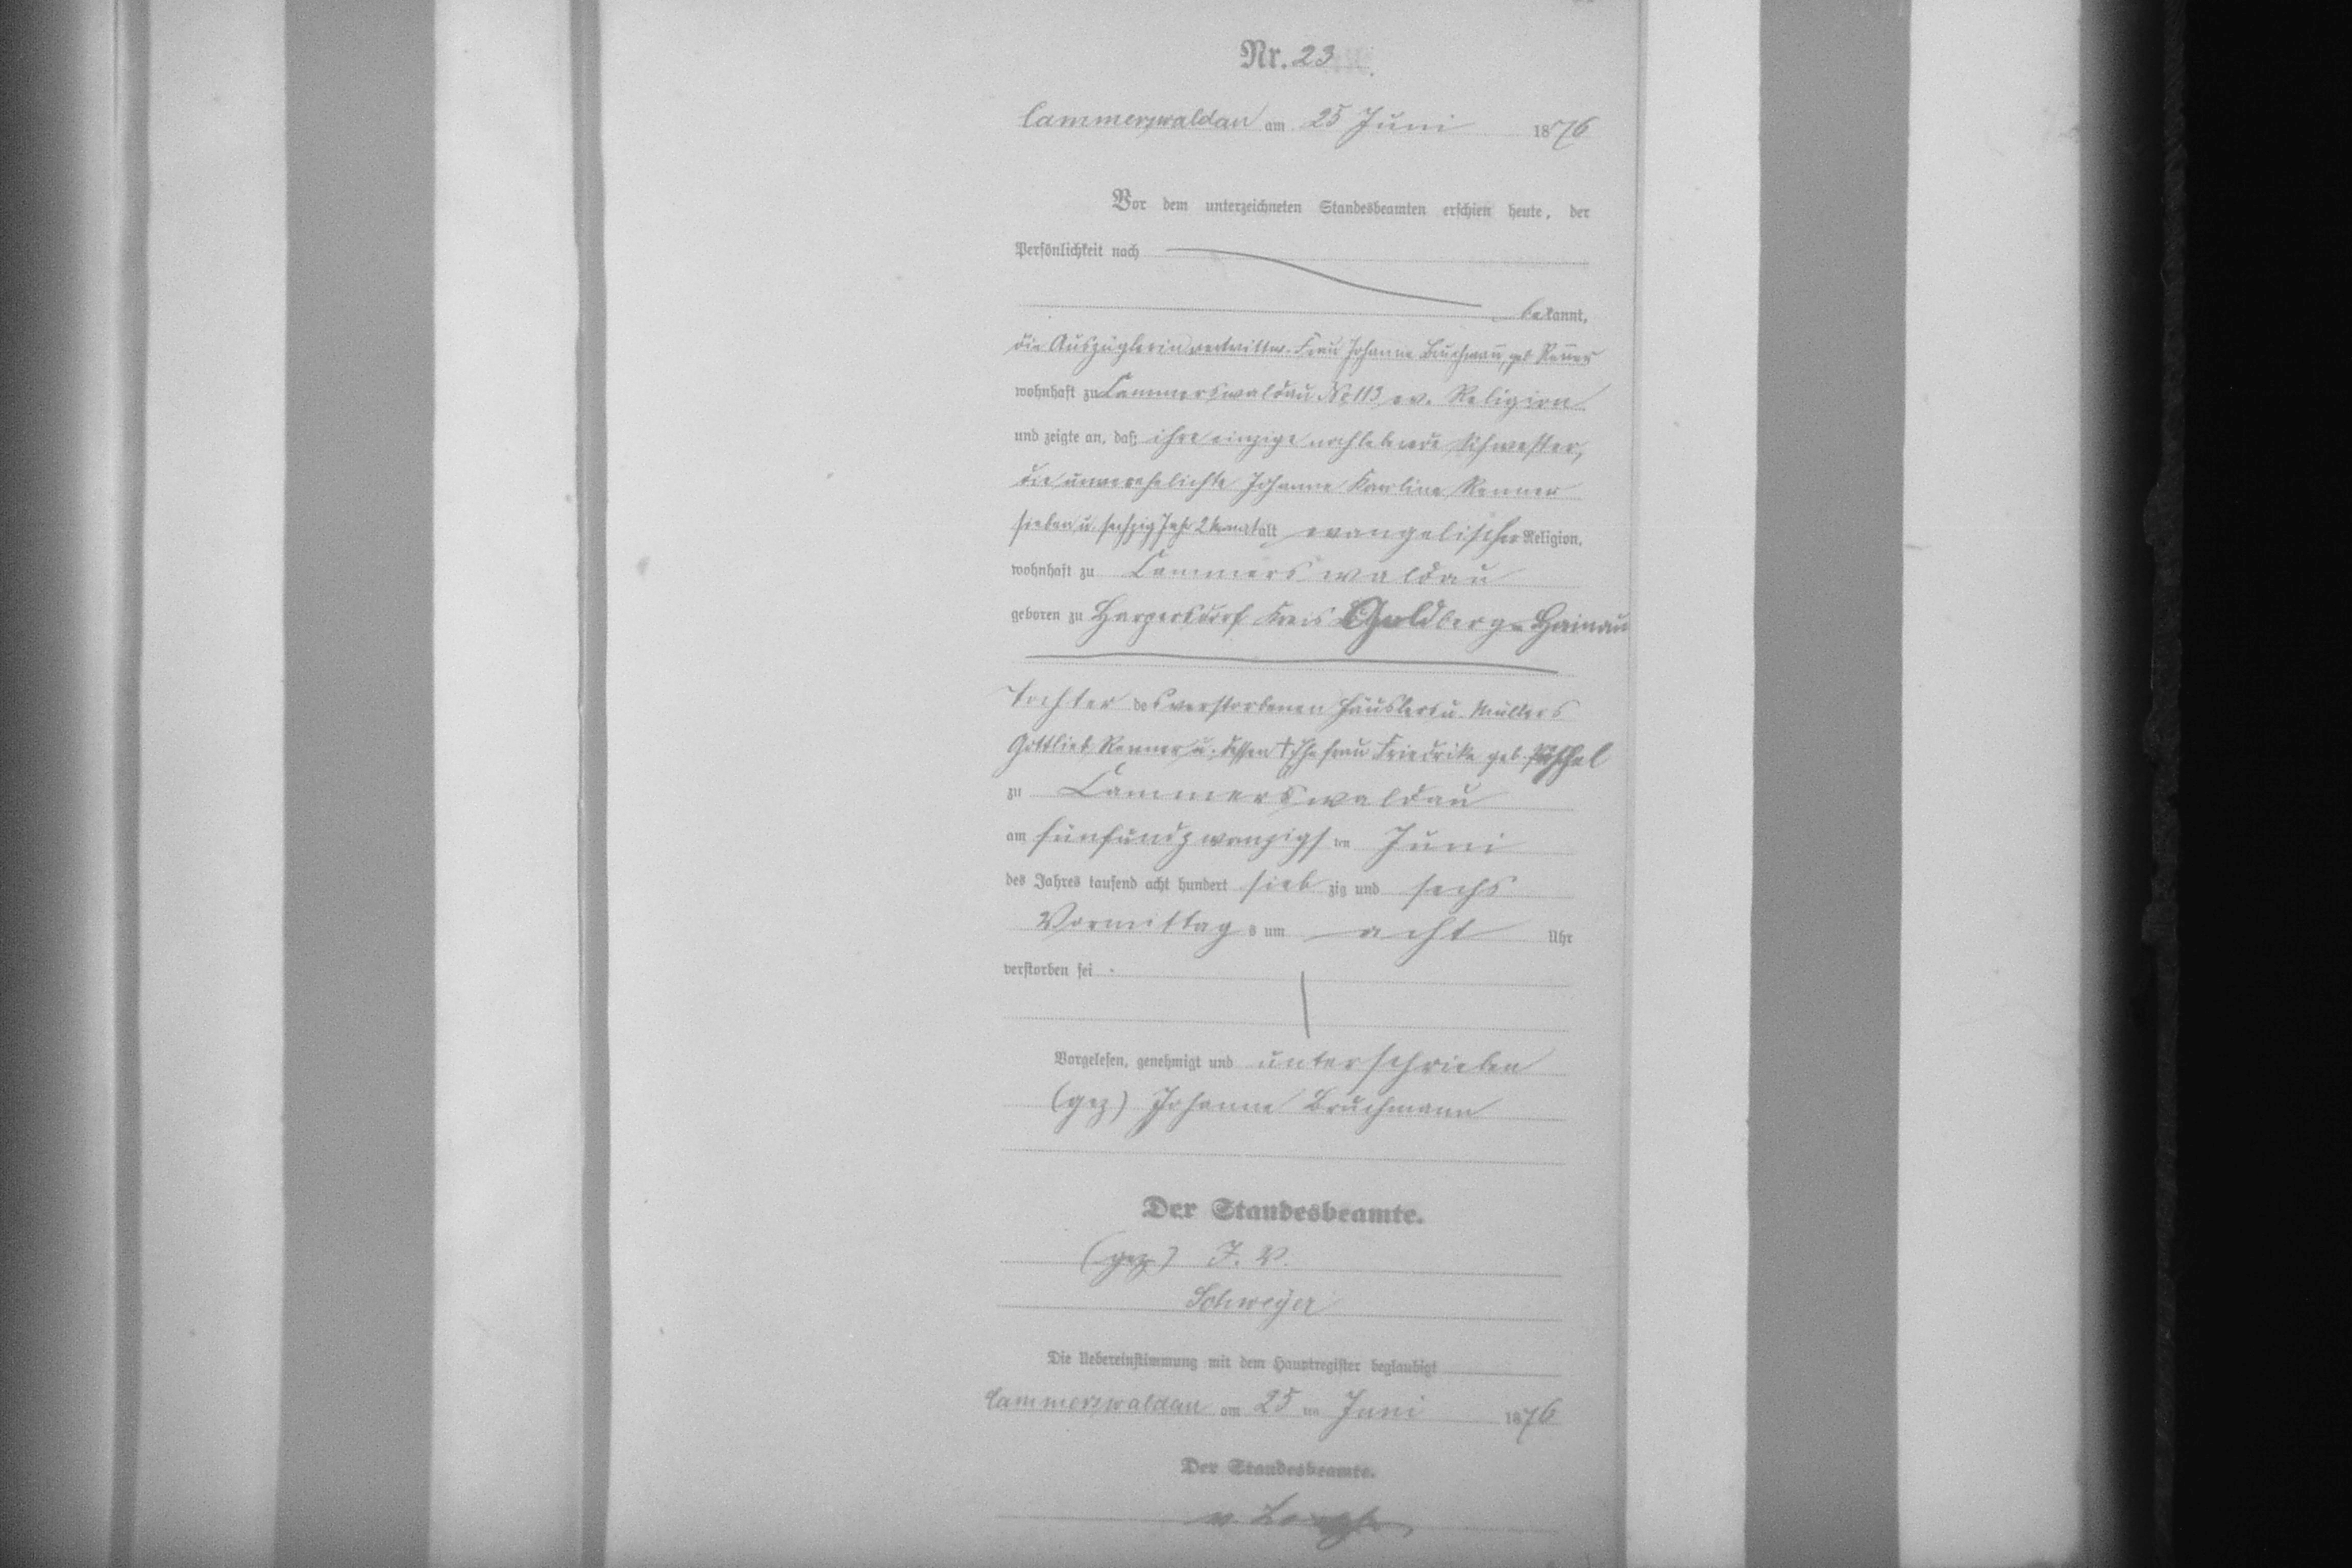 Nr. 23
Cammerswaldau am 25 Juni 1876
Vor dem unterzeichneten Standesbeamten erschien heute, der
Persönlichkeit nach
bekannt,
die Auszüglerin verwittw. Frau Johanne Bruchman̄, geb Ren̄er
wohnhaft zu Cammerswaldau No 113 ev. Religion
und zeigte an, daß ihre einzige nochlebende Schwester,
die unverehelichte Johanne Karline Renner
sieben u. sechzig Jahr 2 Monat alt evangelischer Religion,
wohnhaft zu Cammerswaldau
geboren zu Harpersdorf Kreis Goldberg-Hainau
Tochter des verstorbenen Häuslers u. Müllers
Gottlieb Renner u. dessen † Ehefrau Friedrike geb.
zu Cammerswaldau
am fünfundzwanzigsten Juni
des Jahres tausend acht hundert siebzig und sechs
Vormittags um acht Uhr
verstorben sei
Vorgelesen, genehmigt und unterschrieben
(gez) Johanne Bruchmann
Der Standesbeamte.
(gez) J. V.
Schweyer
Die Uebereinstimmung mit dem Hauptregister beglaubigt
Cammerswaldau am 25 ten Juni 1876
Der Standesbeamte.